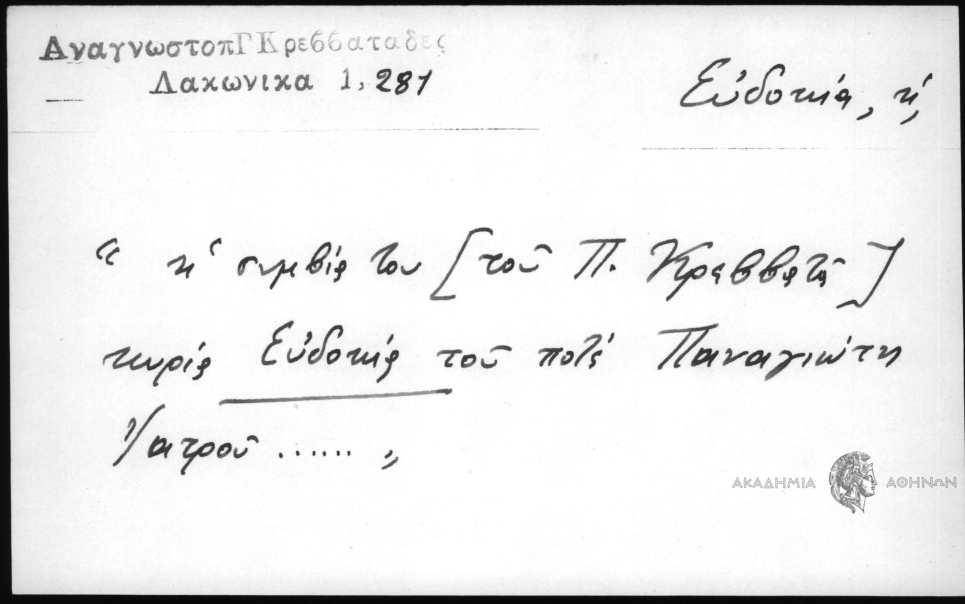 ΑναγνωστοπΓΚρεββαταδες
Λακωνικα 1, 281
Εὐδοκία, ἡ,
“ ἡ συμβία του [τοῦ Π. Κρεββατᾶ]
κυρία Εὐδοκία τοῦ ποτέ Παναγιώτη
Ἰατροῦ ...... „
ΑΚΑΔΗΜΙΑ ΑΘΗΝΩΝ